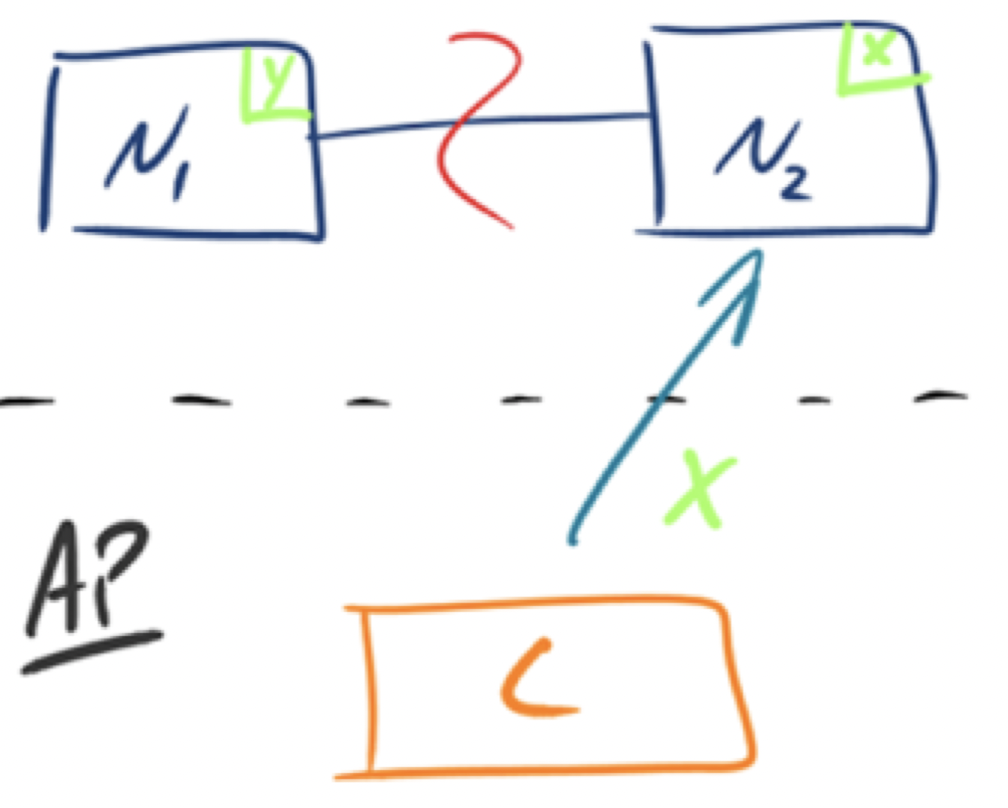 N1 y N2 x
X
AP
C